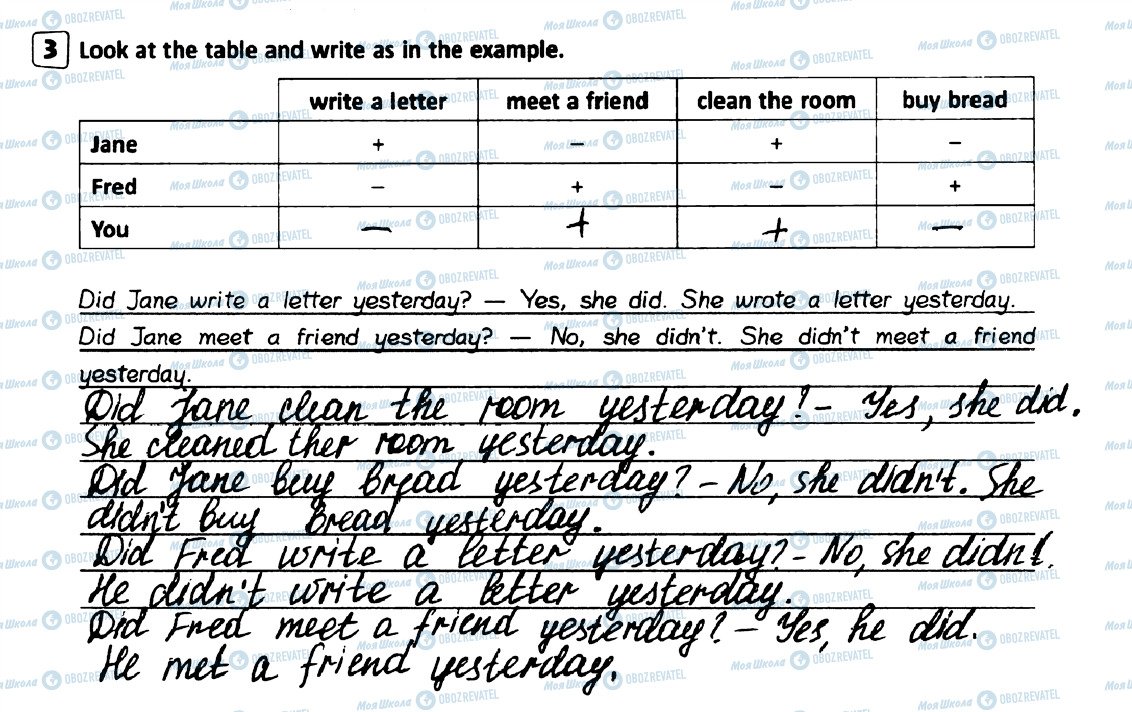 3 Look at the table and write as in the example.
write a letter meet a friend clean the room buy bread
Jane + – + –
Fred – + – +
You – + + –
Did Jane write a letter yesterday? — Yes, she did. She wrote a letter yesterday.
Did Jane meet a friend yesterday? — No, she didn't. She didn't meet a friend
yesterday.
Did Jane clean the room yesterday! – Yes, she did.
She cleaned ther room yesterday.
Did Jane buy bread yesterday? – No, she didn't. She
didn't buy bread yesterday.
Did Fred write a letter yesterday? – No, she didn't.
He didn't write a letter yesterday.
Did Fred meet a friend yesterday? – Yes, he did.
He met a friend yesterday.
МояШкола OBOZREVATEL